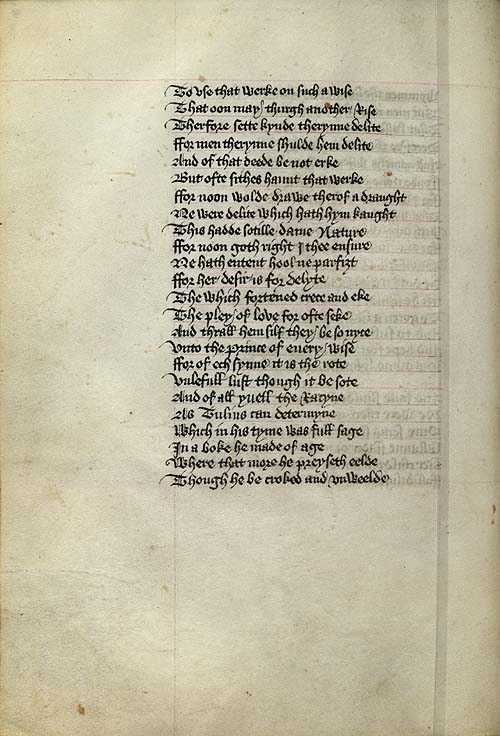 To vse that werke on such a wise
That oon may thurgh another Rise
Therfore sette kynde therynne delite
ffor men therynne shulde hem delite
And of that deede be not erke
But ofte sithes haunt that werke
ffor noon wolde drawe therof a draught
Ne were delite which hath hym kaught
This hadde sotille dame Nature
ffor noon goth right I thee ensure
Ne hath entent hool ne parfizt
ffor her desir is for delyte
The which fortened crece and eke
The pley of love for ofte seke
And thrall hem silf they be so nyce
Vnto the prince of euery wise
ffor of ech synne it is the rote
Vnlefull lust though it be sote
And of all yuell the Racyne
As Tulius can determyne
Which in his tyme was full sage
In a boke he made of age
Where that more he preyseth eelde
Though he be croked and vnweelde